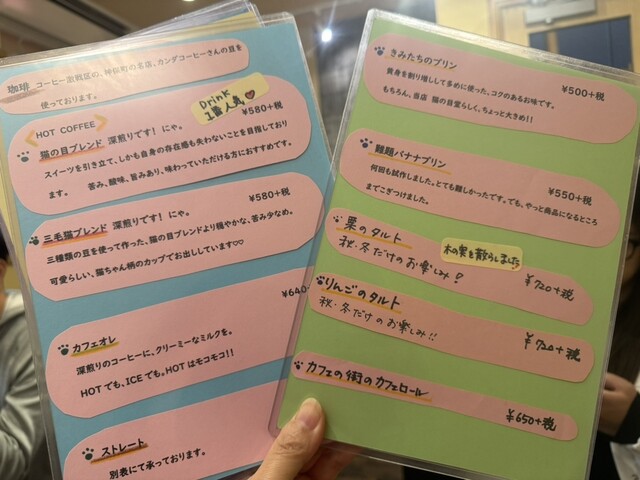 珈琲 コーヒー激戦区の、神保町の名店、カンダコーヒーさんの豆を
使っております。
Drink
1番人気♥
HOT COFFEE
¥580+税
猫の目ブレンド 深煎りです！にゃ。
スイーツを引き立て、しかも自身の存在感も失わないことを目指しており
ます。 苦み、酸味、旨みあり、味わっていただける方におすすめです。
¥580+税
三毛猫ブレンド 深煎りです！にゃ。
三種類の豆を使って作った、猫の目ブレンドより穏やかな、苦み少なめ。
可愛らしい、猫ちゃん柄のカップでお出ししています♡♡
¥640
カフェオレ
深煎りのコーヒーに、クリーミーなミルクを。
HOTでも、ICEでも。HOTはモコモコ！！
ストレート
別表にて承っております。
きみたちのプリン
¥500+税
黄身を割り増しして多めに使った、コクのあるお味です。
もちろん、当店 猫の目愛らしく、ちょっと大きめ！！
難題バナナプリン
¥550+税
何回も試作しました。とても難しかったです。でも、やっと商品になるところ
までこぎつけました。
栗のタルト
木の実を散らしました
¥720+税
秋・冬だけのお楽しみ！
りんごのタルト
¥720+税
秋・冬だけのお楽しみ！！
カフェの街のカフェロール
¥650+税